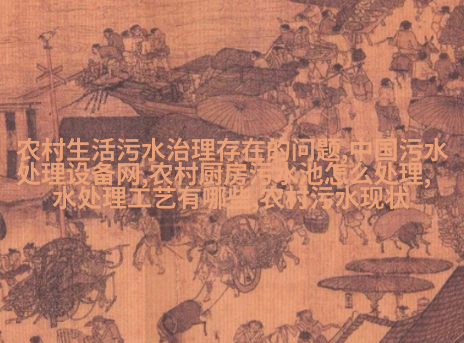 农村生活污水治理存在的问题,中国污水
处理设备网,农村厨房污水池怎么处理,
水处理工艺有哪些,农村污水现状